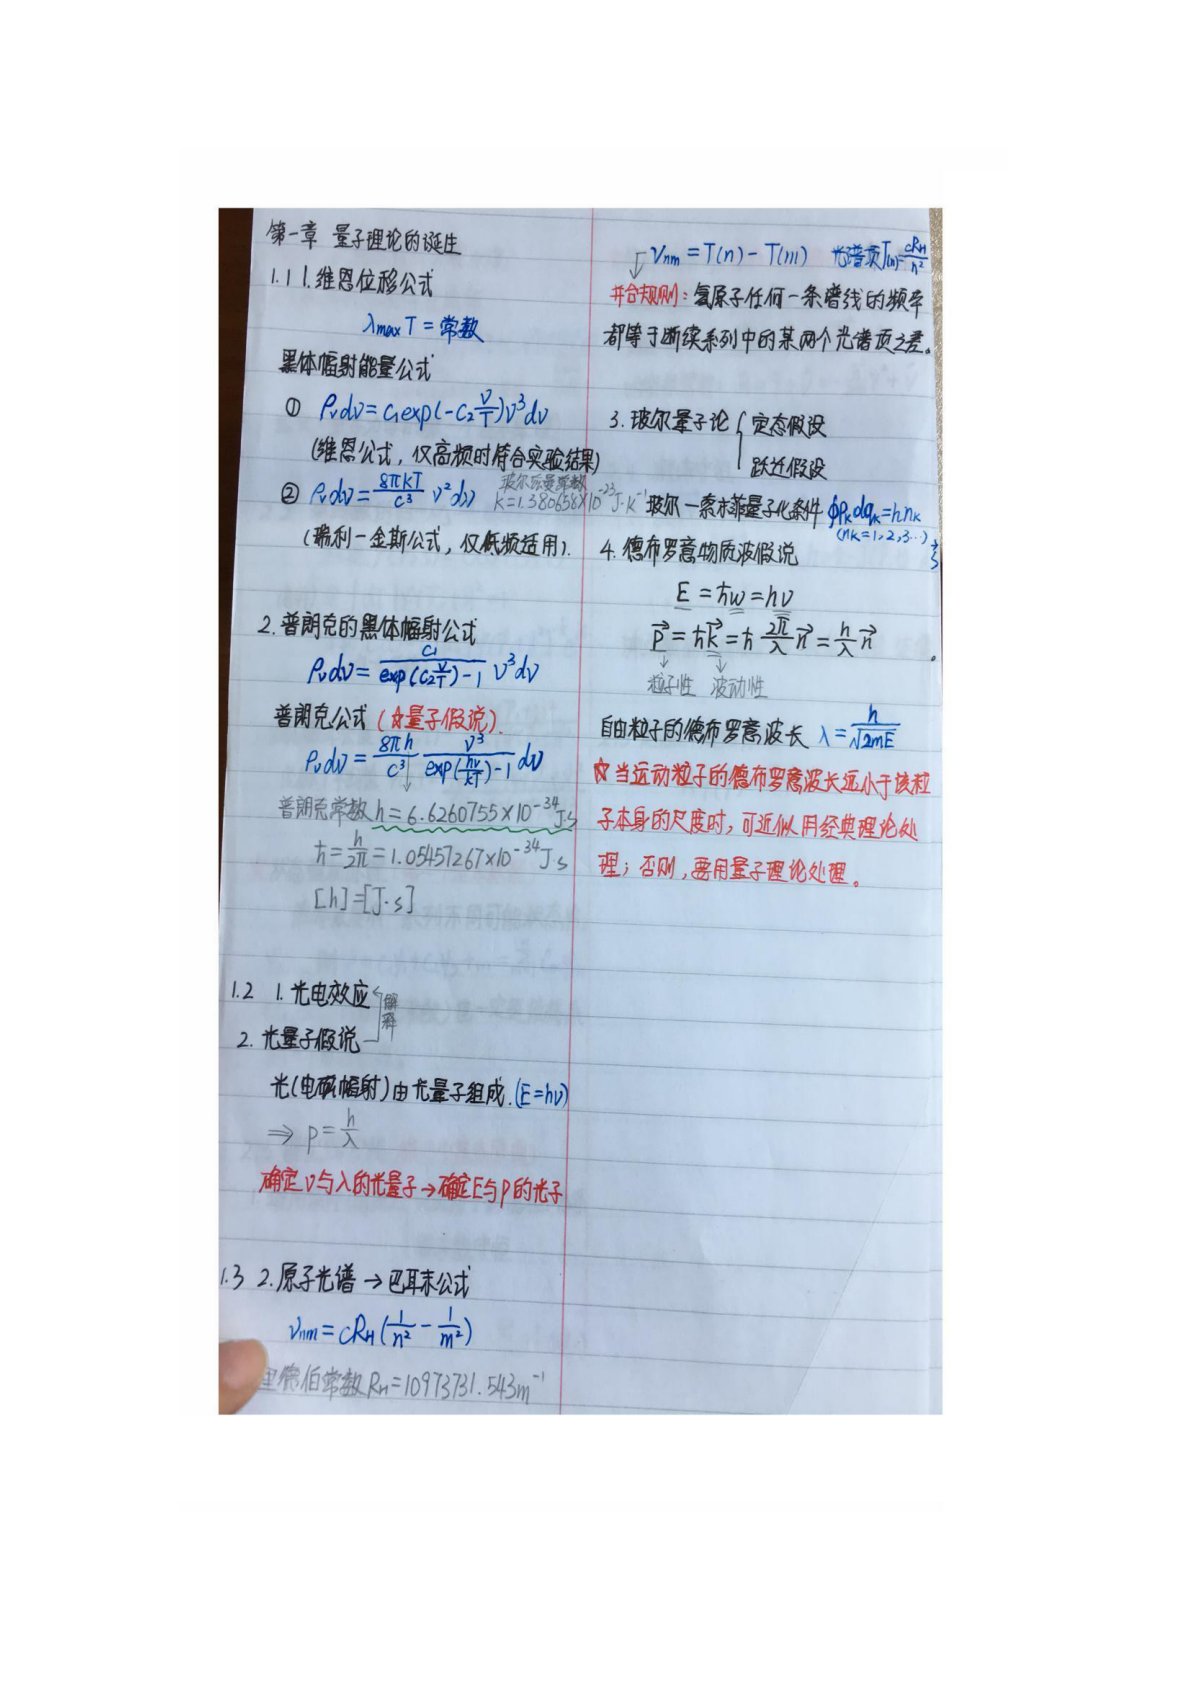 第一章 量子理论的诞生
1.1 1.维恩位移公式
λmax T = 常数
黑体辐射能量公式
① ρν dν = c₁exp(-c₂ν/T)ν³dν
(维恩公式，仅高频时符合实验结果)
② ρν dν = 8πkT/c³ ν²dν 玻尔兹曼常数 k=1.380658×10⁻²³J·k⁻¹
(瑞利-金斯公式，仅低频适用).
2.普朗克的黑体辐射公式
ρν dν = c₁/(exp(c₂ν/T)-1) ν³dν
普朗克公式(☆量子假说).
ρν dν = 8πh/c³ ν³/(exp(hν/kT)-1) dν
普朗克常数 h = 6.6260755×10⁻³⁴J·s
ħ = h/2π = 1.05457267×10⁻³⁴J·s
[h]=[J·s]
1.2 1.光电效应
解释
2.光量子假说
光(电磁辐射)由光量子组成.(E=hν)
⇒ p = h/λ
确定ν与λ的光量子→确定E与p的光子
1.3 2.原子光谱→巴耳末公式
νnm = cRH(1/n² - 1/m²)
里德伯常数RH=10973731.543m⁻¹
νnm = T(n) - T(m) 光谱项T(n)=cRH/n²
并合规则：氢原子任何一条谱线的频率
都等于断续系列中的某两个光谱项之差。
3.玻尔量子论 { 定态假设
跃迁假设
玻尔-索末菲量子化条件 ∮pₖdqₖ=hnₖ
(nₖ=1,2,3…)
4.德布罗意物质波假说
E = ħw = hν
p⃗ = ħk⃗ = ħ 2π/λ n⃗ = h/λ n⃗
粒子性 波动性
自由粒子的德布罗意波长 λ = h/√2mE
☆当运动粒子的德布罗意波长远小于该粒
子本身的尺度时，可近似用经典理论处
理；否则，要用量子理论处理。